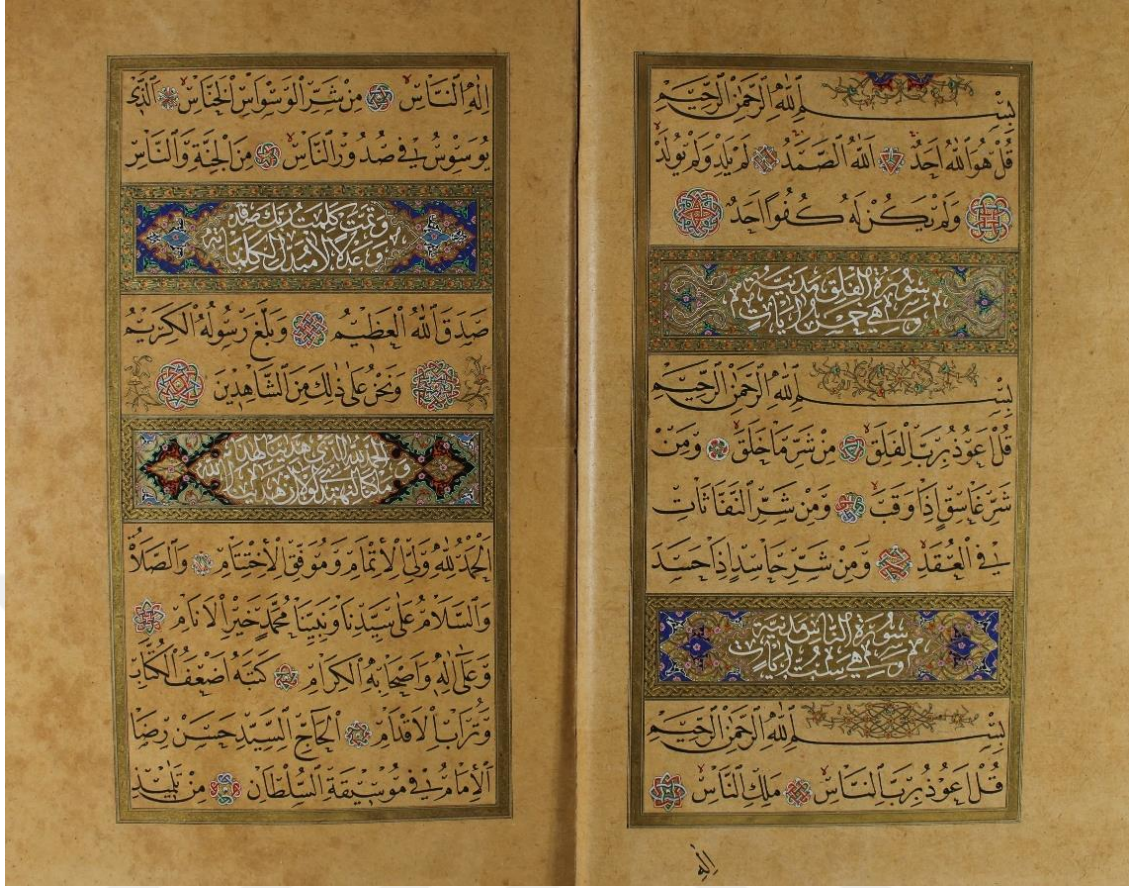 بِسْمِ اللّٰهِ الرَّحْمٰنِ الرَّحٖيمِ
قُلْ هُوَ اللّٰهُ اَحَدٌ اَللّٰهُ الصَّمَدُ لَمْ يَلِدْ وَلَمْ يُولَدْ
وَلَمْ يَكُنْ لَهُ كُفُوًا اَحَدٌ
سُورَةُ الْفَلَقِ مَدَنِيَّةٌ
وَهِيَ خَمْسُ اٰيَاتٍ
بِسْمِ اللّٰهِ الرَّحْمٰنِ الرَّحٖيمِ
قُلْ اَعُوذُ بِرَبِّ الْفَلَقِ مِنْ شَرِّ مَا خَلَقَ وَمِنْ
شَرِّ غَاسِقٍ اِذَا وَقَبَ وَمِنْ شَرِّ النَّفَّاثَاتِ
فِي الْعُقَدِ وَمِنْ شَرِّ حَاسِدٍ اِذَا حَسَدَ
سُورَةُ النَّاسِ مَدَنِيَّةٌ
وَهِيَ سِتُّ اٰيَاتٍ
بِسْمِ اللّٰهِ الرَّحْمٰنِ الرَّحٖيمِ
قُلْ اَعُوذُ بِرَبِّ النَّاسِ مَلِكِ النَّاسِ
اِلٰهِ
اِلٰهِ النَّاسِ مِنْ شَرِّ الْوَسْوَاسِ الْخَنَّاسِ اَلَّذٖى
يُوَسْوِسُ فٖي صُدُورِ النَّاسِ مِنَ الْجِنَّةِ وَالنَّاسِ
وَتَمَّتْ كَلِمَتُ رَبِّكَ صِدْقًا
وَعَدْلًا لَا مُبَدِّلَ لِكَلِمَاتِهِ
صَدَقَ اللّٰهُ الْعَظٖيمُ وَبَلَّغَ رَسُولُهُ الْكَرٖيمُ
وَنَحْنُ عَلٰى ذٰلِكَ مِنَ الشَّاهِدٖينَ
الْحَمْدُ لِلّٰهِ الَّذٖي هَدٰينَا لِهٰذَا
وَمَا كُنَّا لِنَهْتَدِيَ لَوْلَا اَنْ هَدٰينَا اللّٰهُ
اَلْحَمْدُ لِلّٰهِ وَلِيِّ الْاِتْمَامِ وَمُوَفِّقِ الْاِخْتِتَامِ وَالصَّلَاةُ
وَالسَّلَامُ عَلٰى سَيِّدِنَا وَنَبِيِّنَا مُحَمَّدٍ خَيْرِ الْاَنَامِ
وَعَلٰى اٰلِهِ وَاَصْحَابِهِ الْكِرَامِ كَتَبَهُ اَضْعَفُ الْكُتَّابِ
وَتُرَابُ الْاَقْدَامِ اَلْحَاجُّ السَّيِّدُ حَسَنْ رِضَا
اَلْاِمَامُ فٖي مُوسٖيقَةِ السُّلْطَانِ مِنْ تَلَامٖيذِ